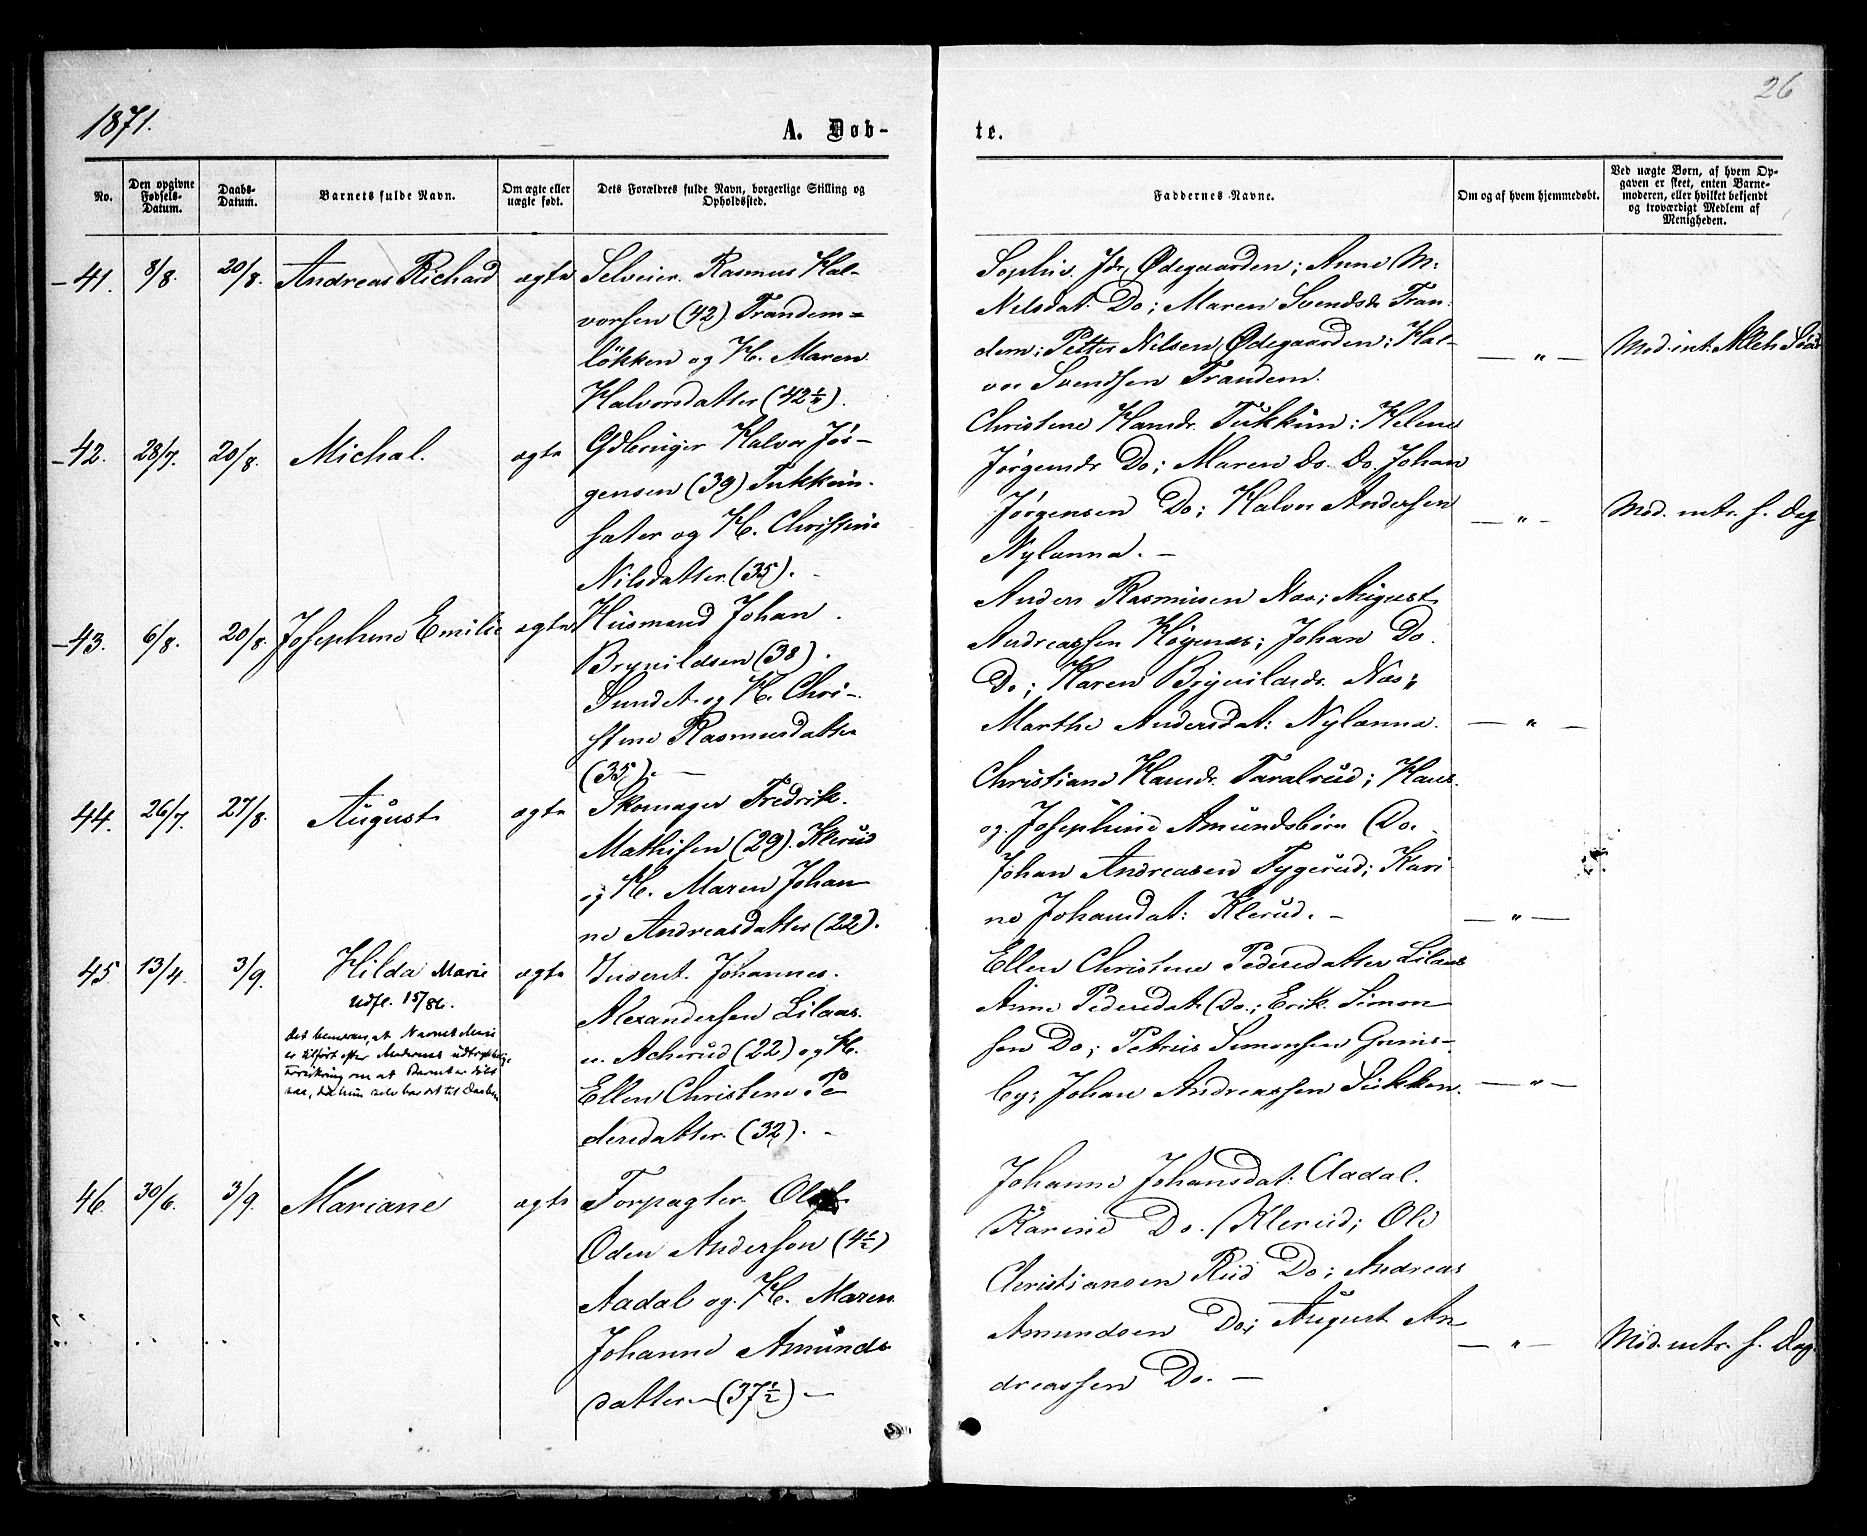 1871.
26
A. Døb-
te.
No.
Den opgivne Fødsels-Datum.
Daabs-Datum.
Barnets fulde Navn.
Om ægte eller uægte født.
Dets Forældres fulde Navn, borgerlige Stilling og Opholdssted.
Faddernes Navne.
Om og af hvem hjemmedøbt.
Ved uægte Børn, af hvem Op-
gaven er skeet, enten Barne-
moderen, eller hvilket bekjendt
og troværdigt Medlem af
Menigheden.
41. 8/8. 20/8. Andreas Richard ægte
Selveier. Rasmus Hal-
vorsen (42) Trandem=
løkken og H. Maren
Halvorsdatter (42½).
Sophie Jdr. Ødegaarden; Anne M.
Nilsdat. Do; Maren Svendsdr Tran-
dem; Petter Nilsen Ødegaarden; Hal-
vor Svendsen Trandem.
— " —
Mod. int.
42. 28/7. 20/8. Michal. ægte
Halvor Jør-
gensen (39) Tukkun-
sæter og H. Christine
Nilsdatter. (35).
Christene Hansdr. Tukkun; Helene
Jørgensdr Do; Maren do. Do. Johan
Jørgensen Do; Halvor Andersen
Nylænna. —
— " —
Mod. intr. s. Dag
43. 6/8. 20/8. Josephine Emilie ægte
Husmand Johan
Brynildsen (38).
Sundet og H. Chri-
stine Rasmusdatter
(35). —
Anders Rasmusen Næs; August
Andreassen Høgenæs; Johan Do.
Do; Karen Brynildsdr. Næs;
Marthe Andersdat: Nylænna.
— " —
44. 26/7. 27/8. August ægte
Skomager Fredrik
Mathisen (29). Klerud
og H. Maren Johan
ne Andreasdatter (22).
Christiane Hansdr. Taralrud; Hans
og Josephine Amundsbørn Do.
Johan Andreasen Tygerud; Kari
ne Johansdat: Klerud. —
— " —
45 13/4. 3/9. Hilda Marie ægte
Udfl. 15/86.
Det bemærkes, at Navnet Marie
er tilført efter Moderens udtrykkelige
Forsikring om at Barnet er døbt
saa, da hun selv bar det til Daaben
Inderst. Johannes.
Alexandersen Lilaas
u. Acherud (22) og H.
Ellen Christene Pe
dersdatter. (32). -
Ellen Christene Pedersdatter Lilaas
Anne Pedersdat. Do.; Erik Simon
sen Do; Petrus Simonsen Grims-
by; Johan Andreassen Sukken.
— " —
46. 30/6. 3/9. Mariane ægte
Forpagter
Oden Andersen (4½)
Aadal og H. Maren
Johanne Amunds
datter. — (37½) —
Johanne Johansdat: Aadal.
Karine Do. Klerud; Ole
Christiansen Rud Do; Andreas
Amundsen Do; August An
dreassen Do. —
— " —
Mod. intr. s. Dag.